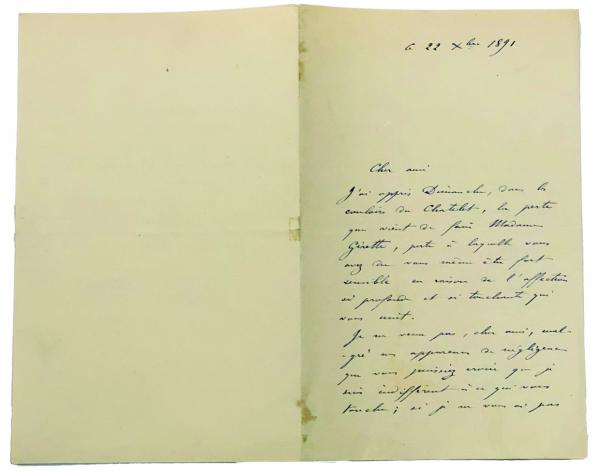 le 22 Xbre 1891
Cher ami
J'ai appris Dimanche, dans les
couloirs du Chatelet, la perte
que vient de faire Madame
Gérette, perte à laquelle vous
avez dû vous même être fort
sensible en raison de l'affection
si profonde et si touchante qui
vous unit.
Je ne veux pas, cher ami, mal-
-gré mes apparences de négligence
que vous puissiez croire que je
suis indifférent à ce qui vous
touche; si je ne vous ai pas